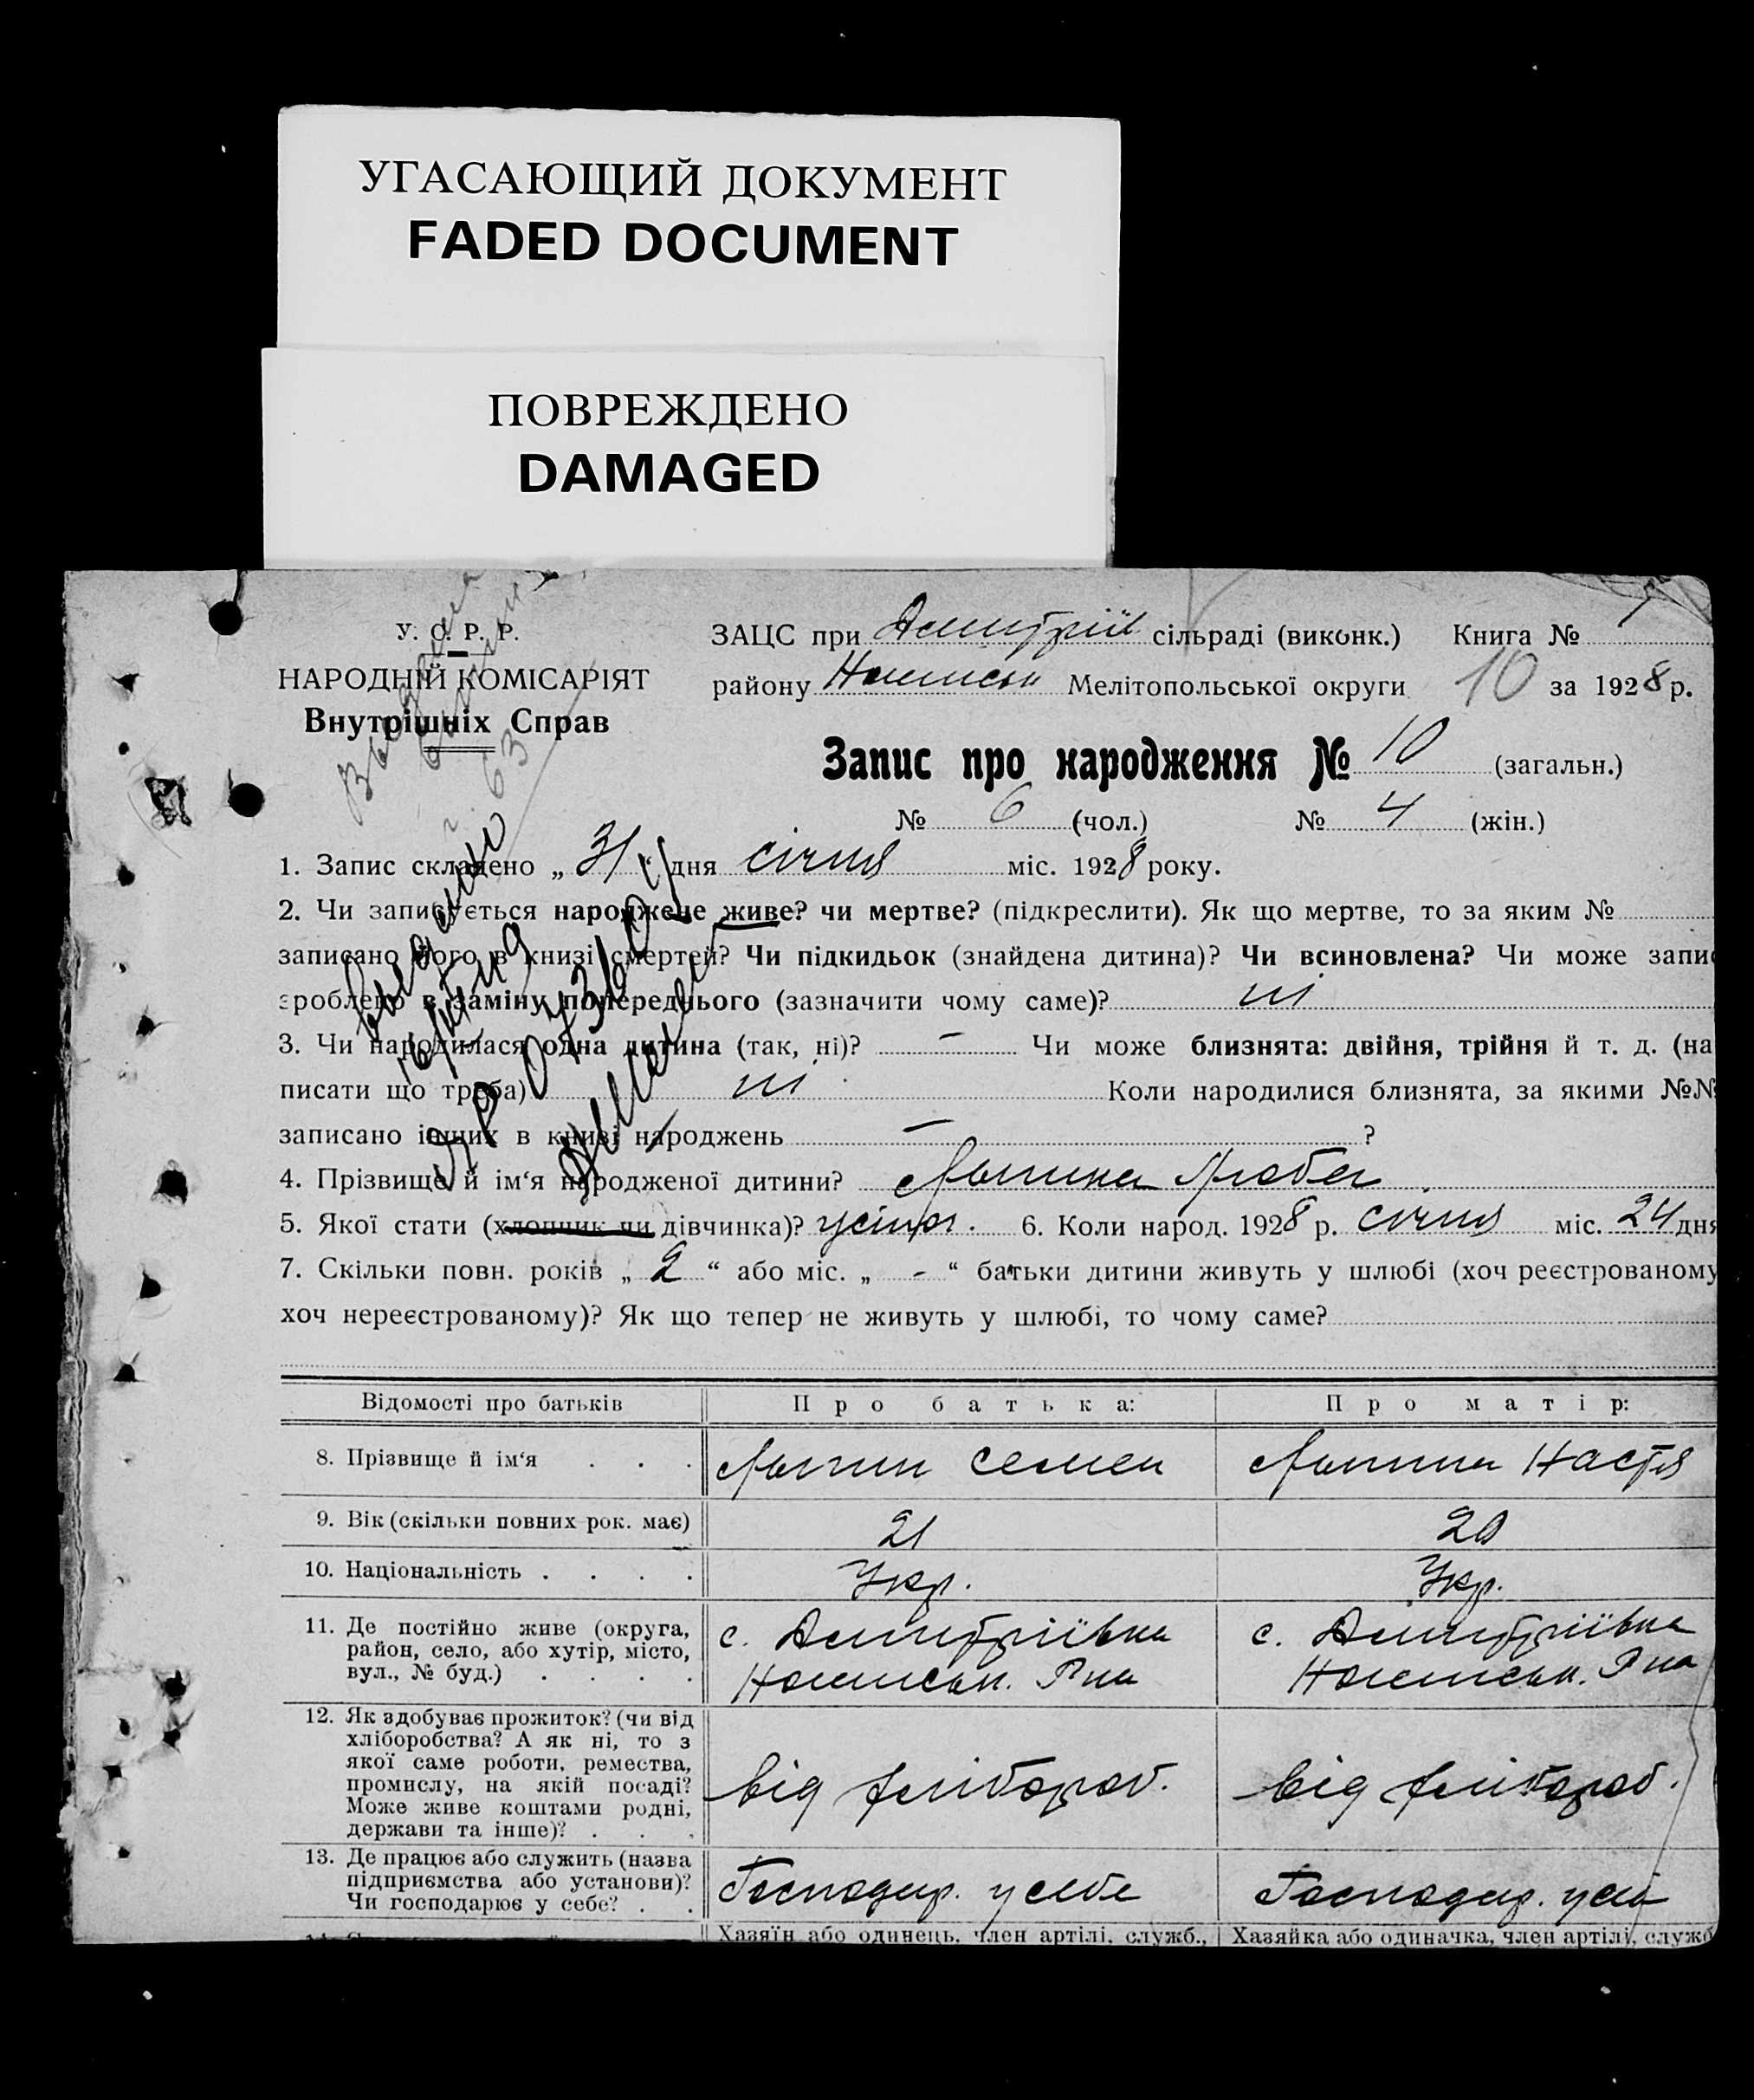 УГАСАЮЩИЙ ДОКУМЕНТ
FADED DOCUMENT
ПОВРЕЖДЕНО
DAMAGED
У. С. Р. Р.
НАРОДНІЙ КОМІСАРІЯТ
Внутрішніх Справ
ЗАЦС при Дмитріїв сільраді (виконк.) Книга № 1
району Мелітопольської округи 10 за 1928 р.
Запис про народження № 10 (загальн.)
№ 6 (чол.) № 4 (жін.)
1. Запис складено „ 31 “ дня січня міс. 1928 року.
2. Чи записується народжене живе? чи мертве? (підкреслити). Як що мертве, то за яким №
записано його в книзі смертей? Чи підкидьок (знайдена дитина)? Чи всиновлена? Чи може запис
зроблено в заміну попереднього (зазначити чому саме)? ні
3. Чи народилася одна дитина (так, ні)? – Чи може близнята: двійня, трійня й т. д. (на
писати що треба) ні Коли народилися близнята, за якими №№
записано інших в книзі народжень – ?
4. Прізвище й ім‘я народженої дитини? Люба
5. Якої стати (хлопчик чи дівчинка)? 6. Коли народ. 1928 р. січня міс. 24 дня
7. Скільки повн. років „ 2 “ або міс. „ - “ батьки дитини живуть у шлюбі (хоч реєстрованому
хоч нереєстрованому)? Як що тепер не живуть у шлюбі, то чому саме?
Відомості про батьків Про батька: Про матір:
8. Прізвище й ім‘я . . . Семен Настя
9. Вік (скільки повних рок. має) 21 20
10. Національність . . . . Укр. Укр.
11. Де постійно живе (округа,
район, село, або хутір, місто,
вул., № буд.) . . . .
с. Дмитріївка
Р-на
с. Дмитріївка
Р-на
12. Як здобуває прожиток? (чи від
хліборобства? А як ні, то з
якої саме роботи, ремества,
промислу, на якій посаді?
Може живе коштами родні,
держави та інше)? . . .
від хлібороб.
від хлібороб.
13. Де працює або служить (назва
підприємства або установи)?
Чи господарює у себе? . .
Господар. у себе
Господар. у
Хазяїн або одинець, член артілі, служб., Хазяйка або одиначка, член артілі, служб